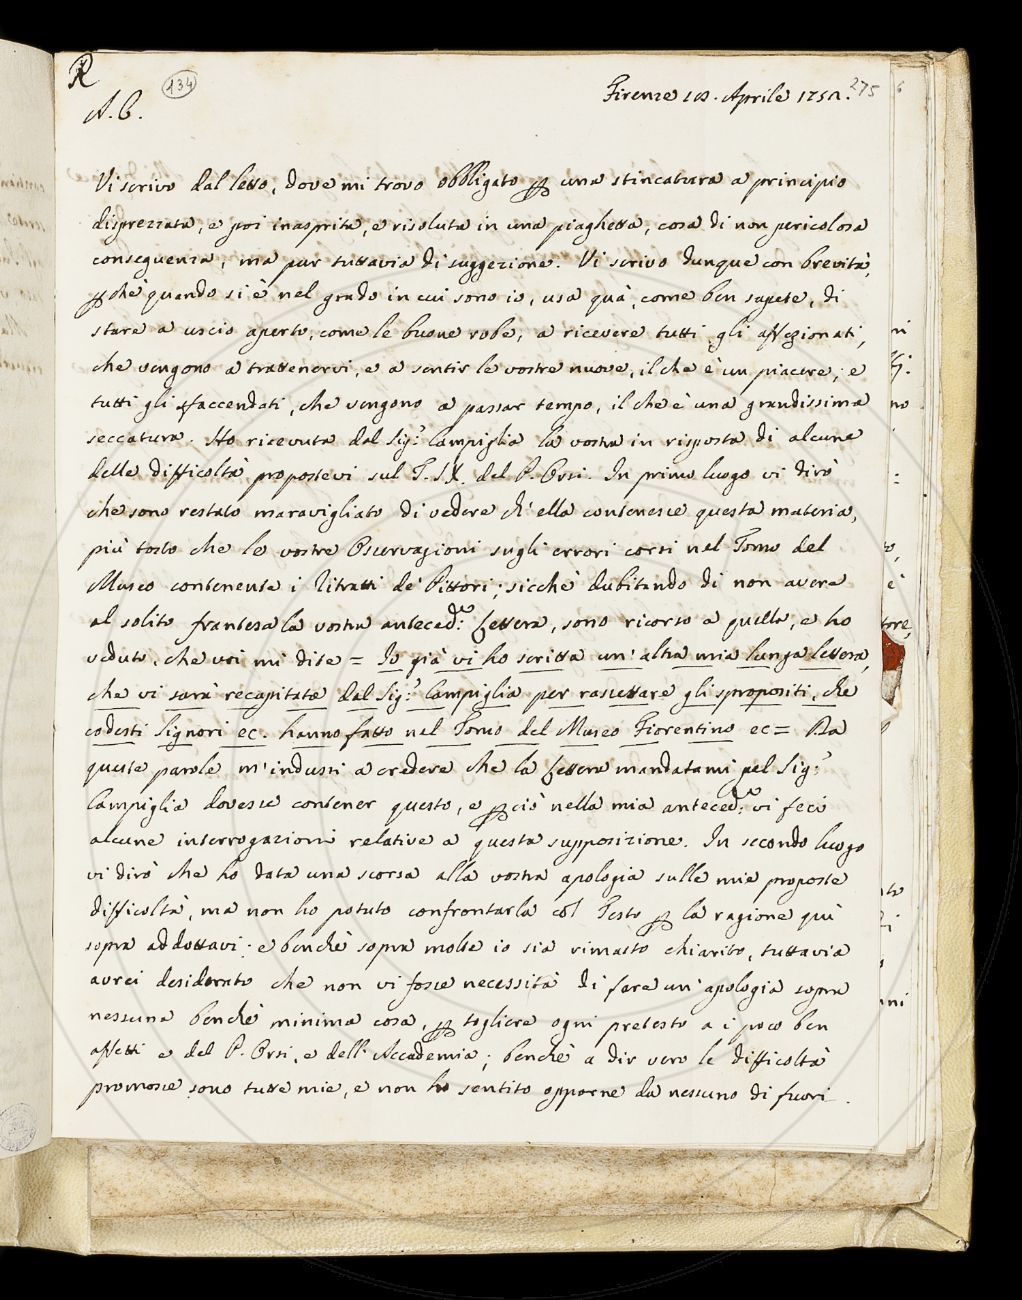 R
134
Firenze 18. Aprile 1752.
275
A. C.
Vi scrivo dal letto, dove mi trovo obbligato p una stincatura a principio
disprezzata, e poi inasprita, e risoluta in una piaghetta, cosa di non pericolosa
conseguenza, ma pur tuttavia di suggezione. Vi scrivo dunque con brevità,
pchè quando si è nel grado in cui sono io, usa quà, come ben sapete, di
stare a uscio aperto, come le buone robe, a ricevere tutti gli affezionati,
che vengono a trattenervi, e a sentir le vostre nuove, il che è un piacere; e
tutti gli sfaccendati, che vengono a passar tempo, il che è una grandissima
seccatura. Ho ricevuta dal Sig.r Campiglia la vostra in risposta di alcune
delle difficoltà propostevi sul T. IX. del P. Orsi. In primo luogo vi dirò
che sono restato maravigliato di vedere ch' ella contenesse questa materia,
più tosto che le vostre Osservazioni sugli errori corsi nel Tomo del
Museo contenente i Ritratti de' Pittori; sicchè dubitando di non avere
al solito frantesa la vostra anteced.te Lettera, sono ricorso a quella, e ho
veduto, che voi mi dite = Io già vi ho scritta un' altra mia lunga lettera,
che vi sarà recapitata dal Sig.r Campiglia per rassettare gli spropositi, che
codesti Signori ec. hanno fatto nel Tomo del Museo Fiorentino ec = Da
queste parole m' indussi a credere che la Lettera mandatami pel Sig.r
Campiglia dovesse contener questo, e pciò nella mia anteced.te vi feci
alcune interrogazioni relative a questa supposizione. In secondo luogo
vi dirò che ho data una scorsa alla vostra apologia sulle mie proposte
difficoltà, ma non ho potuto confrontarla col Testo p la ragione quì
sopra addottavi; e benchè sopra molte io sia rimasto chiarito, tuttavia
avrei desiderato che non vi fosse necessità di fare un' apologia sopra
nessuna benchè minima cosa, p togliere ogni pretesto a i poco ben
affetti e del P. Orsi, e dell' Accademia; benchè a dir vero le difficoltà
promosse sono tutte mie, e non ho sentito opporne da nessuno di fuori.